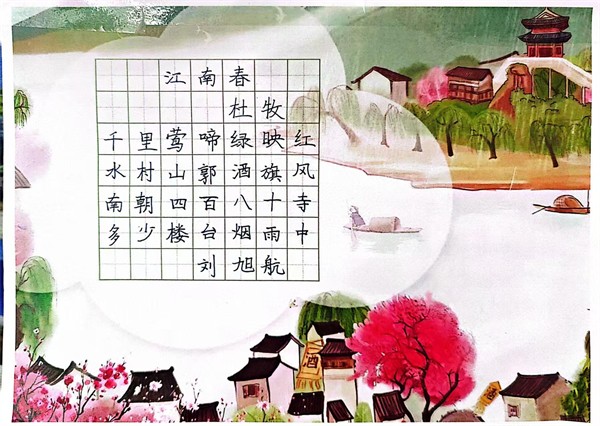 江南春
杜牧
千里莺啼绿映红
水村山郭酒旗风
南朝四百八十寺
多少楼台烟雨中
刘旭航
酒
酒